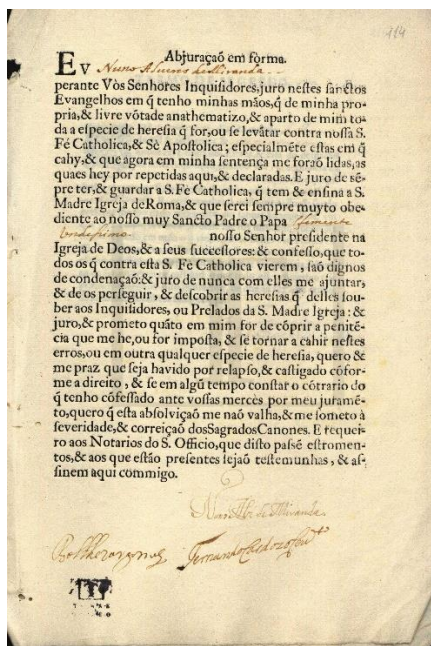 164
Abjuraçaõ em fórma.
EV Nuno Alveres de Miranda
perante Vòs Senhores Inquisidores, juro nestes sanctos
Evangelhos em q̃ tenho minhas mãos, q̃ de minha pro-
pria, & livre võtade anathematizo, & aparto de mim to-
da a especie de heresia q̃ for, ou se levãtar contra nossa S.
Fé Catholica, & Sè Apostolica; especialmẽte estas em q̃
cahy, & que agora em minha sentença me foraõ lidas, as
quaes hey por repetidas aqui, & declaradas. E juro de sẽ-
pre ter, & guardar a S. Fè Catholica, q̃ tem & ensina a S.
Madre Igreja de Roma, & que serei sempre muyto obe-
diente ao nosso muy Sancto Padre o Papa Clemente
Vndesimo nosso Senhor presidente na
Igreja de Deos, & a seus successores: & confesso, que to-
dos os q̃ contra esta S. Fè Catholica vierem, saõ dignos
de condenaçaõ: & juro de nunca com elles me ajuntar,
& de os perseguir, & descobrir as heresias q̃ delles sou-
ber aos Inquisidores, ou Prelados da S. Madre Igreja: &
juro, & prometo quãto em mim for de cõprir a penitẽ-
cia que me he, ou for imposta, & se tornar a cahir nestes
erros, ou em outra qualquer especie de heresia, quero &
me praz que seja havido por relapso, & castigado cõfor-
me a direito, & se em algũ tempo constar o cõtrario do
q̃ tenho cõfessado ante vossas merces por meu juramẽ-
to, quero q̃ esta absolviçaõ me naõ valha, & me someto à
severidade, & correiçaõ dos Sagrados Canones. E requei-
ro aos Notarios do S. Officio, que disto passẽ estromen-
tos, & aos que estão presentes sejaõ testemunhas, & as-
sinem aqui commigo.
Nuno Alz de Miranda
Fernando Cardozo